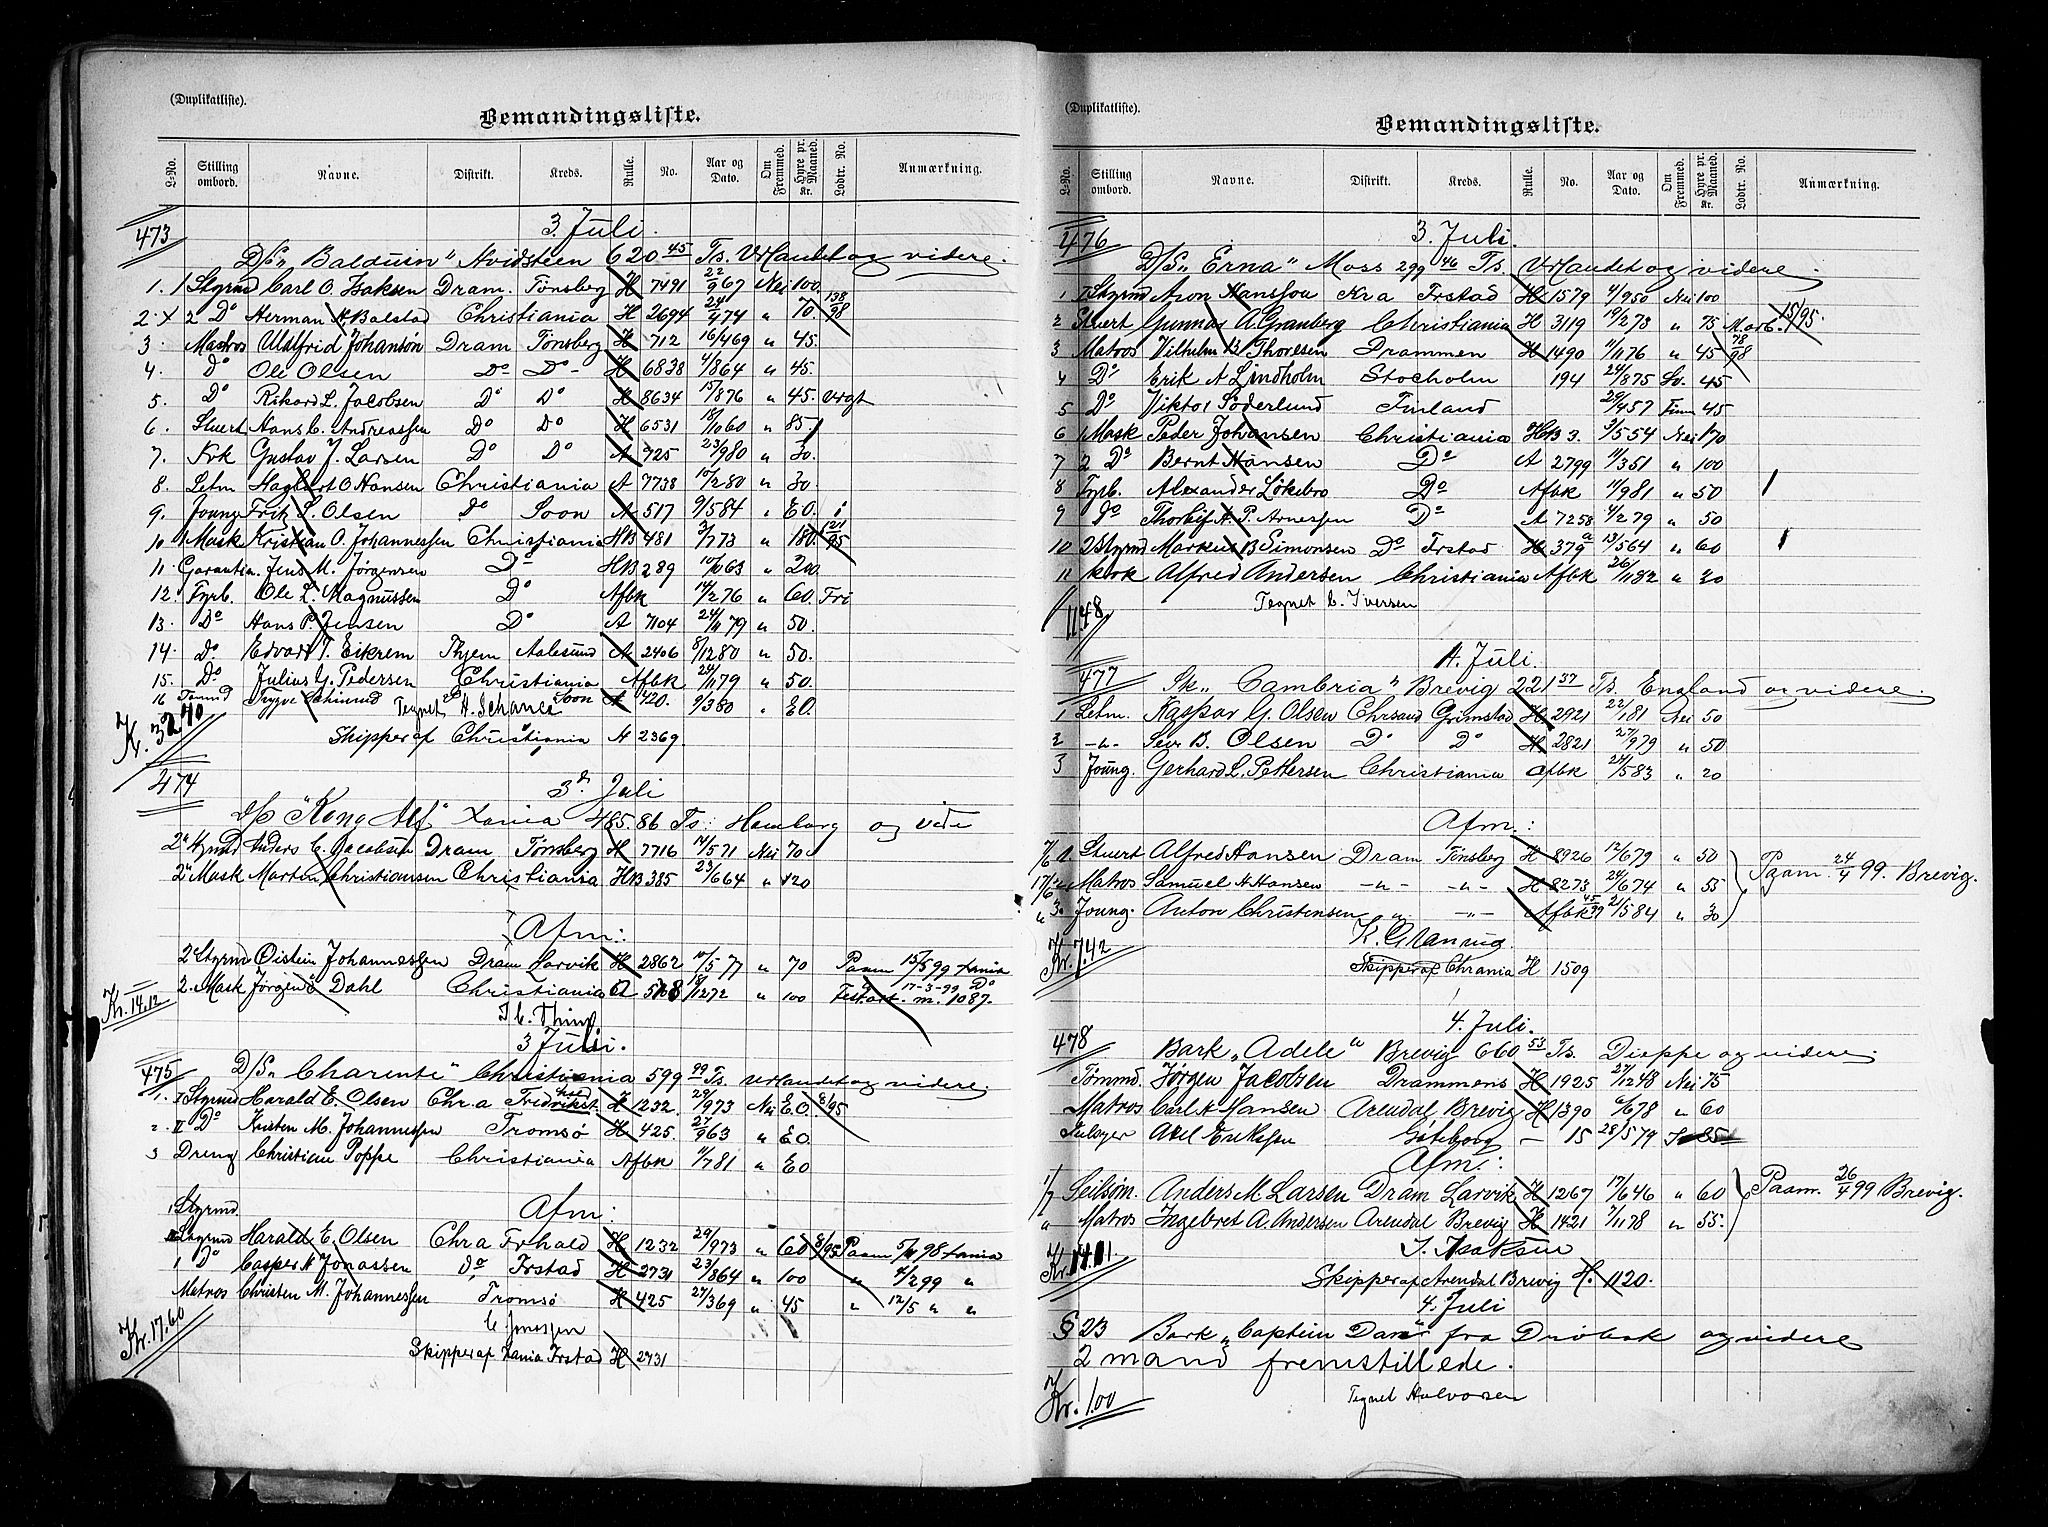 (Duplikatliste).
Bemandingsliste.
L-No. Stilling ombord. Navne. Distrikt. Kreds. Rulle. No. Aar og Dato. Om Fremmed. Hyre pr. Maaned. Kr. Lodtr. No. Anmærkning.
473 3. Juli.
D/S „Balduin" Hvidsteen 620 45 Ts. Urlandet og videre.
1. 1 Styrmd Carl O. Isaksen Dram. Tönsberg H 7491 22/9 67 Nei 100.
2. x 2 Do Herman H. Balstad Christiania H 2694 24/4 74 „ 70. 138/98
3. Matros Ulfrid Johanson Dram Tönsberg H 712 16/4 69 „ 45.
4. Do Ole Olsen Do Do H 6838 4/8 64 „ 45.
5. Do Rikard L. Jacobsen Do Do H 8634 15/8 76 „ 45. Urgt
6. Stuert Hans C. Andreassen Do Do H 6531 18/10 60 „ 85
7. Kok Gustav J. Larsen Do Do A 725 23/9 80 „ 30.
8. Letm Hagbart O Hansen Christiania A 7738 15/2 80 „ 30
9. Joung Fritz S. Olsen Do Soon A 517 9/5 84 „ E0.
10 1 Mask Kristian O. Johannessen Christiania HB 481 3/7 73 „ 180. 121/95
11. Garantim. Jens M. Jörgensen Do HB 289 10/10 63 „ 200.
12. Fyrb. Ole L. Magnussen Do Afbk 14/2 76 „ 60. Fri
13. Do Hans P. Jensen Do A 7104 24/11 79 „ 50.
14. Do Edvart T. Eikrem Thjem Aalesund A 2406 8/12 80 „ 50.
15. Do Julius G. Pedersen Christiania Afbk 24/11 79 „ 50.
16 Trygve Schmid Soon A 420. 9/3 80 „ E0.
Tegnet H. Schance
Kr. 32.70
Skipper af Christiania A 2369.
474 3. Juli
D/S "Kong Alf" Xania 485.86 Ts: Hamburg og vide
2. Styrmd Anders C. Jacobsen Dram Tönsberg H 7716 14/5 71 Nei 70
2. Mask Morten Christianssen Christiania HB 385 23/6 64 „ 120
Afm:
2. Styrmd Öistein Johannessen Dram Larvik H 2862 10/5 77 „ 70 Paam 15/3 99 Xania
2. Mask Jörgen Dahl Christiania A 5168 18/12 72 „ 100 17-3-99 Do m. 1087.
Kr. 14.12
3 Juli.
475 D/S „Charente" Christiania 599 99 Ts. Urlandet og videre.
1. I Styrmd Harald E. Olsen Chr.a Fredrikst. H 1232. 29/9 73 Nei E0. 8/95
2. II Do Kristen M. Johannessen Tromsø H 425. 27/9 63 „ E0.
3 Dreng Christian Poppe Christiania Afbk 11/7 81 „ E0
1 Styrmd. Afm:
Styrmd Harald E. Olsen Chr a Frhald H 1232 29/9 73 „ 60 8/95 Paam 5/11 98 Xania
1 Do Casper A Jonassen Do Frstad H 2731 23/8 64 „ 100 „ 4/2 99 „
Matros Christen M. Johannessen Tromsø H 425 27/3 69 „ 45 „ 12/5 „ „
Kr. 17.60
Skipper af Xania Frstad H 2731
(Duplikatliste).
Bemandingsliste.
L-No. Stilling ombord. Navne. Distrikt. Kreds. Rulle. No. Aar og Dato. Om Fremmed. Hyre pr. Maaned. Kr. Lodtr. No. Anmærkning.
476 3. Juli.
D/S „Erna" Moss 299 46 Ts. Urlandet og videre.
1 I Styrmd Aron Hanssen Kra Frstad H 1579 4/9 50 Nei 100
2 Stuert Gunnar A. Granberg Christiania H 3119 19/2 73 „ 75 M. arb. 15/95.
3 Matros Vilhelm B Thoresen Drammen H 1490 11/11 76 „ 45 78/98
4 Do Erik A Lindholm Stocholm 194 24/8 75 Sv. 45
5 Do Viktor Söderlund Finland 29/4 57 Finn 45
6 1 Mask Peder Johansen Christiania HB 3. 3/5 54 Nei 170
7 2 Do Bernt Hansen Do A 2799 11/3 51 „ 100
8 Fyrb. Alexander Lökebro Do Afbk 11/9 81 „ 50
9 Do Thorleif A. P. Arnessen Do A 7258 4/2 79 „ 50
10 2 Styrmd Markus B Simonsen Do Frstad H 379 a 13/5 64 „ 60
11 Kok Alfred Andersen Christiania Afbk 26/11 82 „ 30
Tegnet C. Iversen
11.48
4. Juli.
477 Sk. „Cambria" Brevig 221 37 Ts. England og videre.
1 Letm. Kaspar G. Olsen Chrsand Grimstad H 2921 22/1 81 Nei 50
2 -„- Sevr B. Olsen Do Do H 2821 27/9 79 „ 50
3 Joung. Gerhard L. Pettersen Christiania Afbk 24/5 83 „ 20
Afm.:
7/6 1. Stuert Alfred Hansen Dram Tönsberg H 8926 12/6 79 „ 50 Paam. 24/4 99. Brevig.
17/6 Matros Samuel H Hansen -„- -„- H 8273 24/6 74 „ 55
„ 3. Joung. Anton Christensen „ -„- Afbk 45/99 21/5 84 „ 30
Kr. 7.42
K. Granung
Skipper af Chrania H 1509
4. Juli.
478 Bark „Adele" Brevig 660 53 Ts. Dieppe og videre
Tömmd. Jørgen Jacobsen Drammens H 1925 27/12 48 Nei 75
Matros Carl A Hansen Arendal Brevig H 1390 6/6 78 „ 60
Axel Eriksen Göteborg — 15 28/5 79 S 85
Afm.:
1/7 Seilsøm. Anders M. Larsen Dram Larvik H 1267 17/6 46 „ 60 Paam. 26/4 99 Brevig.
„ Matros Ingebret A. Andersen Arendal Brevig H 1421 7/11 78 „ 55.
Kr. 14.01.
J. Isaksen
Skipper af Arendal Brevig H. 1120.
4. Juli
§ 23 Bark „Captein Dan" fra Dröbak og videre
2 mand fremstillede.
Kr. 1.00
Tegnet Halvorsen